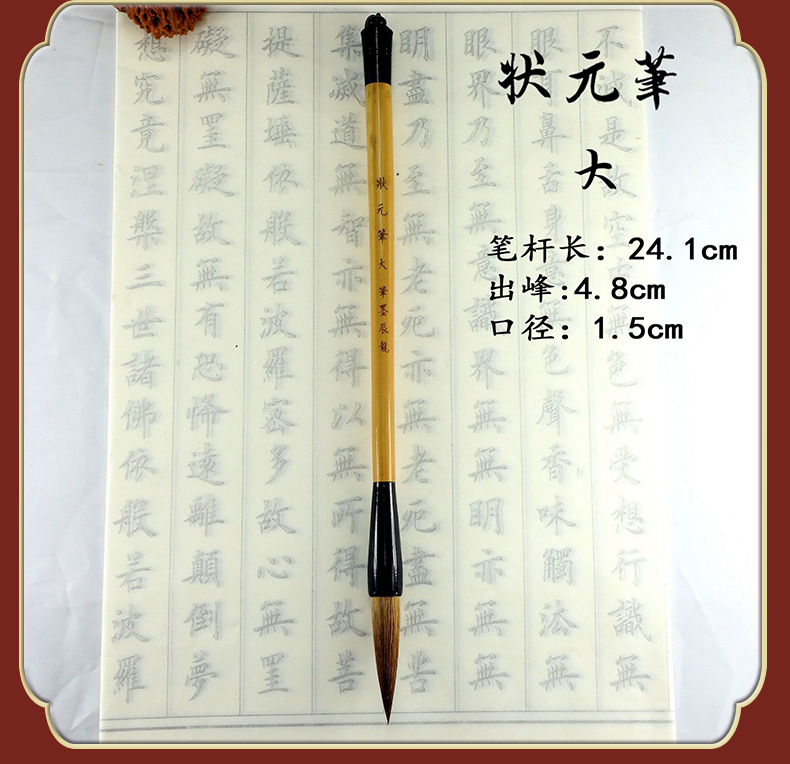 状元筆
大
笔杆长：24.1cm
出峰:4.8cm
口径：1.5cm
狀元筆 大 筆墨辰龍
不減是故空中無色無受想行識無
眼耳鼻舌身意無色聲香味觸法無
眼界乃至無意識界無無明亦無無
明盡乃至無老死亦無老死盡無苦
集滅道無智亦無得以無所得故菩
提薩埵依般若波羅密多故心無罣
礙無罣礙故無有恐怖遠離顛倒夢
想究竟涅槃三世諸佛依般若波羅